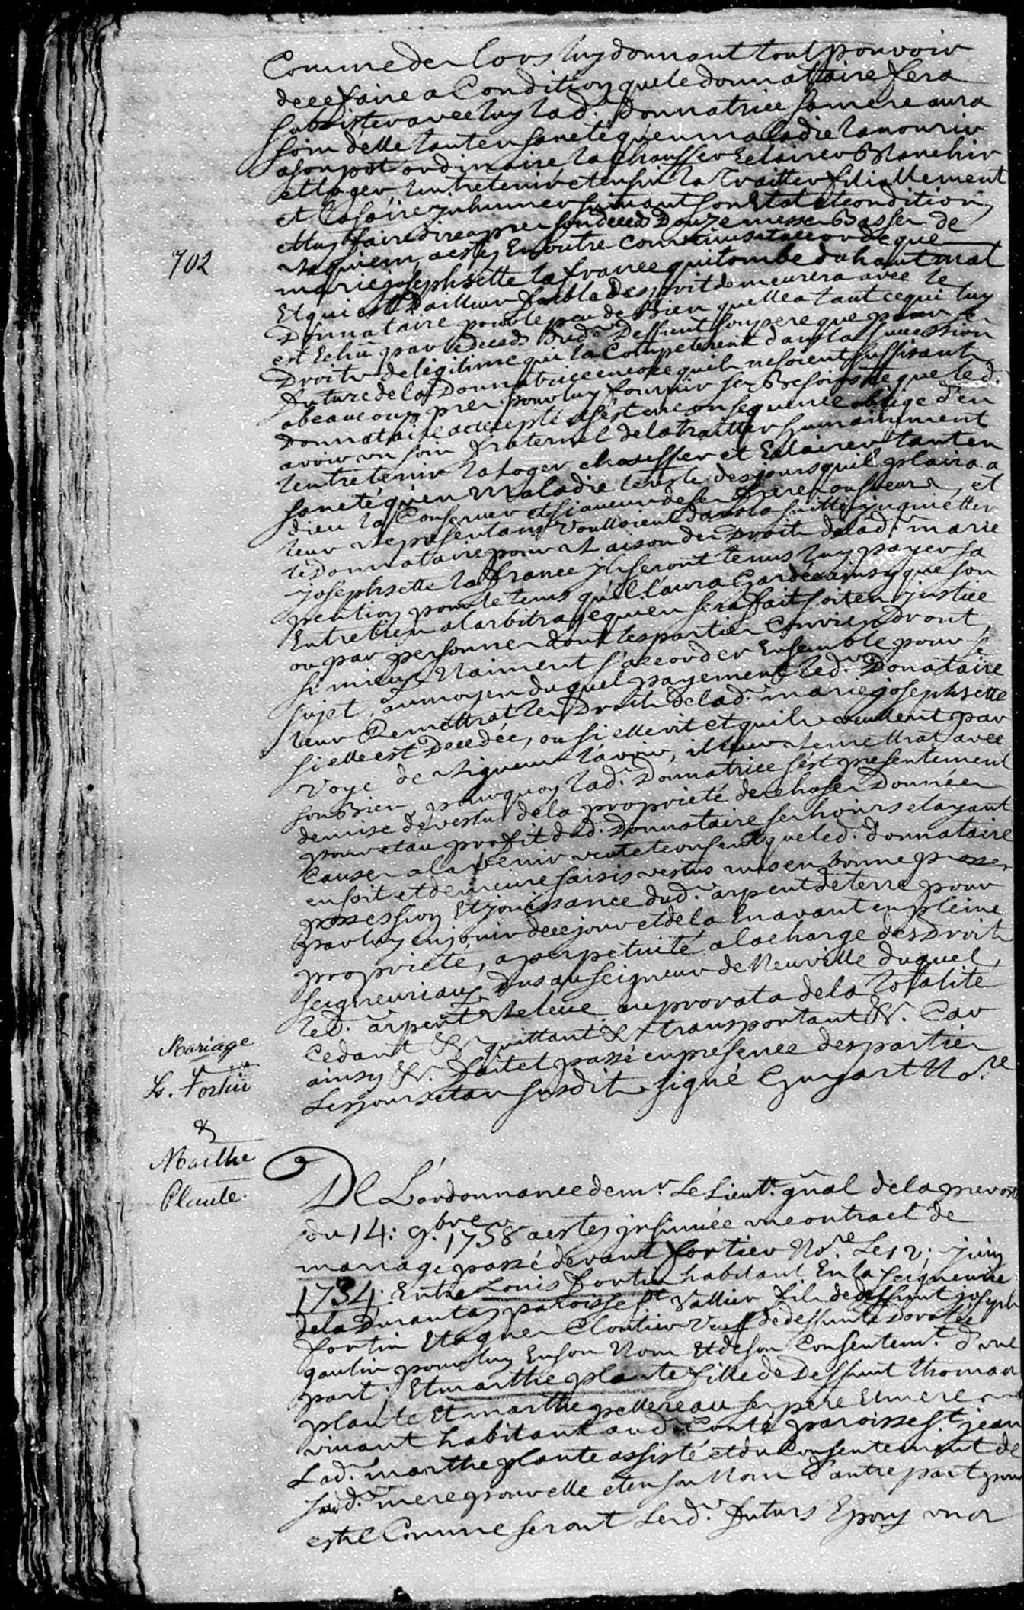 Comme de lors luy donnant tout pouvoir
de ce faire a Condition que le donnattaire fera
subsister avec luy lad. Donnatrice sa mere aura
soin d'elle tant en santé qu'en maladie la nourir
a son pot ordinaire la chauffer Eclairer Blanchir
et loger l'entretenir et enfin la Traitter filiallement
et la faire inhumer suivant son Etat et condition,
et luy faire dire apres son deceds Douze messes Basses de
Requiem, a esté En outre convenu et accordé que
702
marie josephsette la france qui tombe du haut mal
Et qui est d'ailleurs foible d'esprit demeurera avec le
Donnataire pour le peu de Bien qu'elle a tant ce qui luy
est Echu par le deceds dud. Deffunt son pere que pour le
Droit de legitime qui la Competeront dans la succession
future de la Donnatrice encore qu'ils ne soient suffisant
a beaucoup pres pour luy fournir ses Besoins et que led.
Donnataire accepte et s'est en consequence obligé d'en
avoir un soin fraternel de la traitter humainement
l'entretenir la loger chauffer et Eclairer tant en
santé qu'en Maladie le reste des jours qu'il plaira a
dieu la Conserver et si aucun de ses freres ou soeurs, et
leur representans vouloient dans la suitte inquietter
le Donnataire pour raison des Droits de lad. marie
josephsette la france ils seront tenus luy payer sa
pention pour le tems qu'il l'aura Gardée ainsy que son
Entretien a l'arbitrage qu'en sera fait soit en justice
ou par personnes dont les parties conviendront,
si mieux N'aiment s'accorder Ensemble pour ce
sujet, au moyen duquel payement led. Donataire
leur Remettrat les Droits de lad. marie josephsette
si elle est Decedée, ou si elle vit et qu'ils veullent par
voye de rigueur l'avoir, il leur remettrat avec
son Bien, pourquoy lad. Donnatrice s'est presentement
demise devestu de la propriété des choses Données
pour et au profit dud. Donnataire ses hoirs et ayant
causes a l'avenir veut et consent que led. donnataire
en soit et demeure saisis vestus mis en bonne
possession Et jouissance dud. arpent de terre pour
par luy en jouir de ce jour et de la en avant en pleine
propriété, a perpetuité a la charge des Droits
seigneuriaux dus au seigneur de Neuville duquel
led. arpent Releve au prorata de la Totalité
Cedant &. quittant &. transportant &. Car
ainsy &. fait et passé en presence des parties
Les jours et an susdit signé Guyart No.re
Mariage
L. Fortin
&
Marthe
Plante.
De L'ordonnance de mr. Le Lieutt. gnal de la prevosté
du 14: 9.bre 1758 a esté insinuée un contract de
mariage passé devant fortier No.re Le 12: juin
1734, Entre Louis Fortin habitant En la seigneurie
de la Durantay paroisse st Vallier fils de deffunt joseph
fortin Et agnes Cloutier Veuf de deffunte Dorothée
gautin pour luy En son Nom Et de son Consentemt. d'une
part; Et marthe plante fille de Deffunt thomas
plante Et marthe pellereau ses pere Et mere
vivant habitant aud. Conté paroisse st jean
Lad. marthe plante assisté et du Consentement de
sad. mere pour elle et en son Nom d'autre part pour
estre Comme seront Lesd. futurs Epoux unis